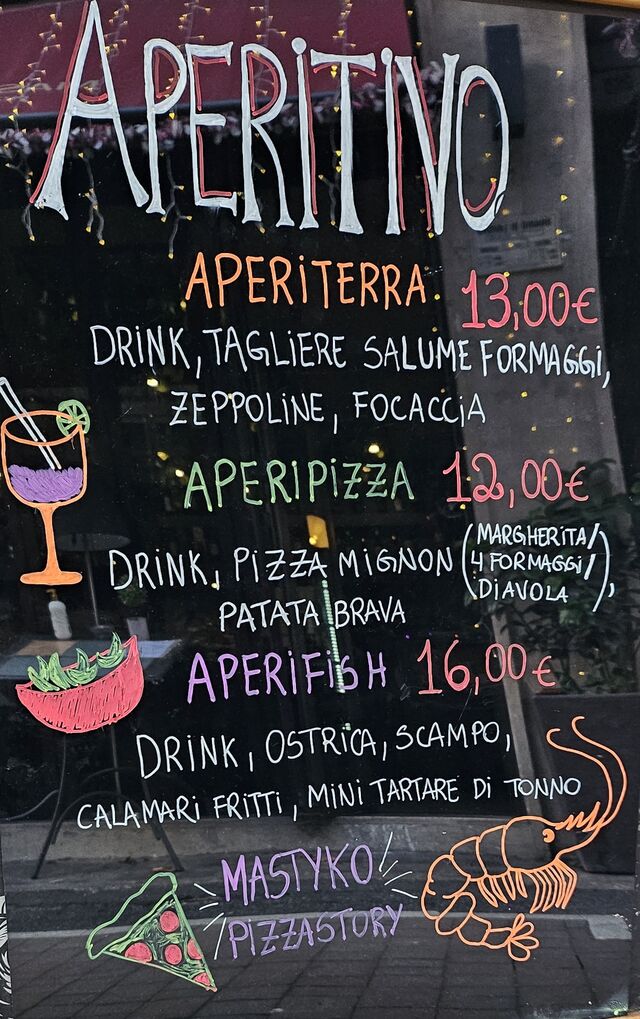 APERITIVO
APERITERRA 13,00€
DRINK, TAGLIERE SALUME FORMAGGI,
ZEPPOLINE, FOCACCIA
APERIPIZZA 12,00€
DRINK, PIZZA MIGNON (MARGHERITA/
4 FORMAGGI/
DIAVOLA),
PATATA BRAVA
APERIFISH 16,00€
DRINK, OSTRICA, SCAMPO,
CALAMARI FRITTI, MINI TARTARE DI TONNO
MASTYKO
PIZZASTORY